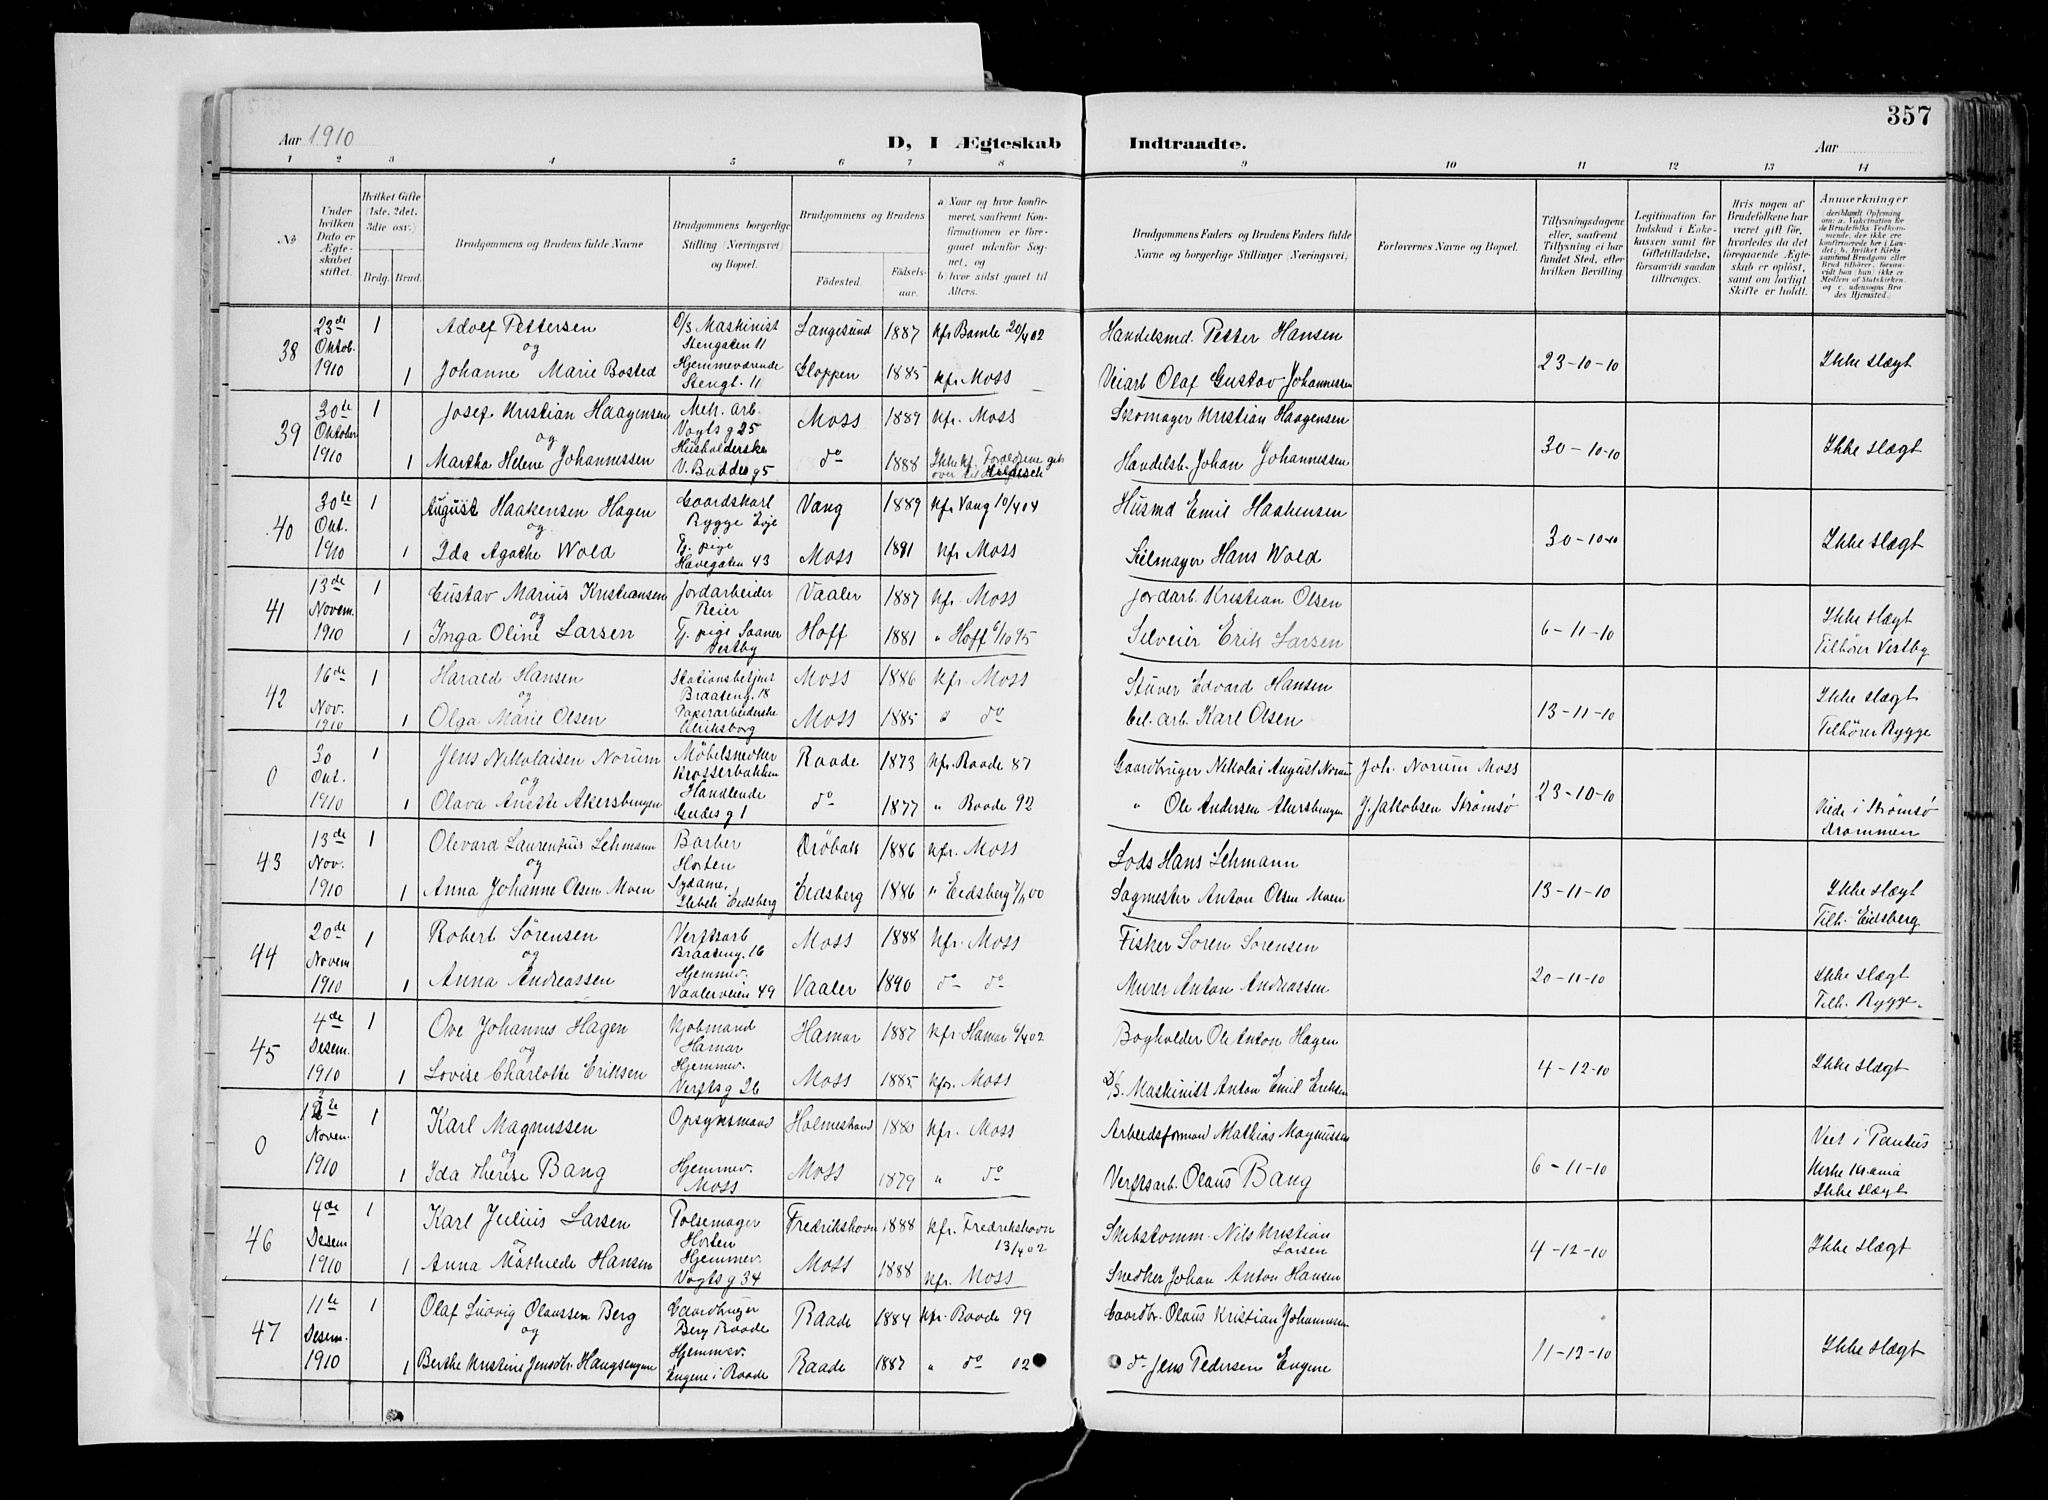 357
Aar 1910
D, I Ægteskab
Indtraadte.
Aar
1 2 3 4 5 6 7 8 9 10 11 12 13 14
No
Under hvilken Dato er Ægteskabet stiftet.
Hvilket Gifte (1ste, 2det, 3die osv.)
Brdg. Brud.
Brudgommens og Brudens fulde Navne
Brudgommens borgerlige Stilling (Næringsvei) og Bopæl.
Brudgommens og Brudens
Fødested. Fødselsaar.
a) Naar og hvor konfirmeret, saafremt Konfirmationen er foregaaet udenfor Sognet, og
b) hvor sidst gaaet til Alters.
Brudgommens Faders og Brudens Faders fulde Navne og borgerlige Stillinger (Næringsvei)
Forlovernes Navne og Bopæl.
Tillysningsdagene eller, saafremt Tillysning ei har fundet Sted, efter hvilken Bevilling.
Legitimation for Indskud i Enkekassen samt for Giftetilladelse, forsaavidt saadan tiltrænges.
Hvis nogen af Brudefolkene har været gift før, hvorledes da det foregaaende Ægteskab er opløst, samt om lovligt Skifte er holdt.
Anmerkninger
38 23de Oktob. 1910 1 Adolf Pettersen D/S Maskinist Stengaten 11 Langesund 1887 kfr Bamle 20/4 02 Handelsmd. Petter Hansen 23-10-10 Ikke slægt
og
1 Johanne Marie Bosted Hjemmeværende Stengt. 11 Gloppen 1885 kfr. Moss Veiarb Olaf Gustav Johannessen
39 30te Oktober 1910 1 Josef Kristian Haagensen Mek. arb. Vogts g 25 Moss 1889 kfr. Moss Skomager Kristian Haagensen 30-10-10 Ikke slægt
og
1 Martha Helene Johannessen Husholderske V. Buddes g 5 do 1888 Ikke kf. Forældrene Handelsb. Johan Johannessen
40 30te Okt. 1910 1 August Haakensen Hagen Gaardskarl Rygge Evje Vang 1889 kfr Vang 10/4 04 Husmd Emil Haakensen 30-10-10 Ikke slægt
og
1 Ida Agathe Wold Tj. pige Havegaten 43 Moss 1891 kfr. Moss Seilmager Hans Wold
41 13de Novem. 1910 1 Gustav Marius Kristiansen Jordarbeider Reier Vaaler 1887 kfr. Moss Jordarb. Kristian Olsen 6-11-10 Ikke slægt
og
1 Inga Oline Larsen Tj. pige Saaner Vestby Hoff 1881 " Hoff 6/10 95 Selveier Erik Larsen Tilhører Vestby
42 16de Nov. 1910 1 Harald Hansen Stationsbetjent Braateng. 18 Moss 1886 kfr. Moss Stuver Edvard Hansen 13-11-10 Ikke slægt
og
1 Olga Marie Olsen Papirarbeiderske Ulriksborg Moss 1885 " do Cel. arb. Karl Olsen Tilhører Rygge
0 30 Okt. 1910 1 Jens Nikolaisen Norum Møbelsnedker Krosserbakken Raade 1873 kfr. Raade 87 Gaardbruger Nikolai August Norum Joh. Norum Moss 23-10-10
og
1 Olava Anette Akersbungen Handlende Gudes g 1 do 1877 " Raade 92 " Ole Andersen Akersbungen J. Jakobsen Strømsø Viede i Strømsø Drammen
43 13de Nov. 1910 1 Olevard Laurentius Lehmann Barber Horten Drøbak 1886 kfr. Moss Lods Hans Lehmann 13-11-10 Ikke slægt
og
1 Anna Johanne Olsen Moen Sydame, Eidsberg Eidsberg 1886 " Eidsberg 00 Sagmester Anton Olsen Moen Tilh. Eidsberg
44 20de Novem 1910 1 Robert Sørensen Verftsarb Braateng. 16 Moss 1888 kfr. Moss Fisker Søren Sørensen 20-11-10 Ikke slægt
og
1 Anna Andreassen Hjemmev. Vaalerveien 49 Vaaler 1890 do do Murer Anton Andreassen Tilh. Rygge.
45 4de Desem. 1910 1 Ove Johannes Hagen Kjøbmand Hamar Hamar 1887 kfr. Hamar 6/4 02 Bogholder Ole Anton Hagen 4-12-10 Ikke slægt
og
1 Lovise Charlotte Eriksen Hjemmev. Verfts g 26 Moss 1885 kfr. Moss D/S. Maskinist Anton Emil Eriksen
0 12te Novem. 1910 1 Karl Magnussen Opsynsmand Holmestrand 1880 kfr. Moss Arbeidsformand Mathias Magnussen 6-11-10 Viet i Paulus Kirke Kr.ania
og
1 Ida Therese Bang Hjemmev. Moss Moss 1879 " do Verftsarb. Olaus Bang Ikke slægt
46 4de Desem 1910 1 Karl Julius Larsen Pølsemager Horten Fredrikshavn 1888 kfr. Fredrikshavn 13/4 02 Skibstømm. Nils Kristian Larsen 4-12-10 Ikke slægt
og
1 Anna Mathilde Hansen Hjemmev. Vogts g 34 Moss 1888 kfr. Moss Snedker Johan Anton Hansen
47 11te Desem. 1910 1 Olaf Ludvig Olaussen Berg Gaardbruger Berg Raade Raade 1884 kfr. Raade 99 Gaardbr. Olaus Kristian Johannesen 11-12-10 Ikke slægt
og
1 Berthe Kristine Jensdtr. Haugsengene Hjemmev. Engene i Raade Raade 1887 " do 02 do Jens Pedersen Engene